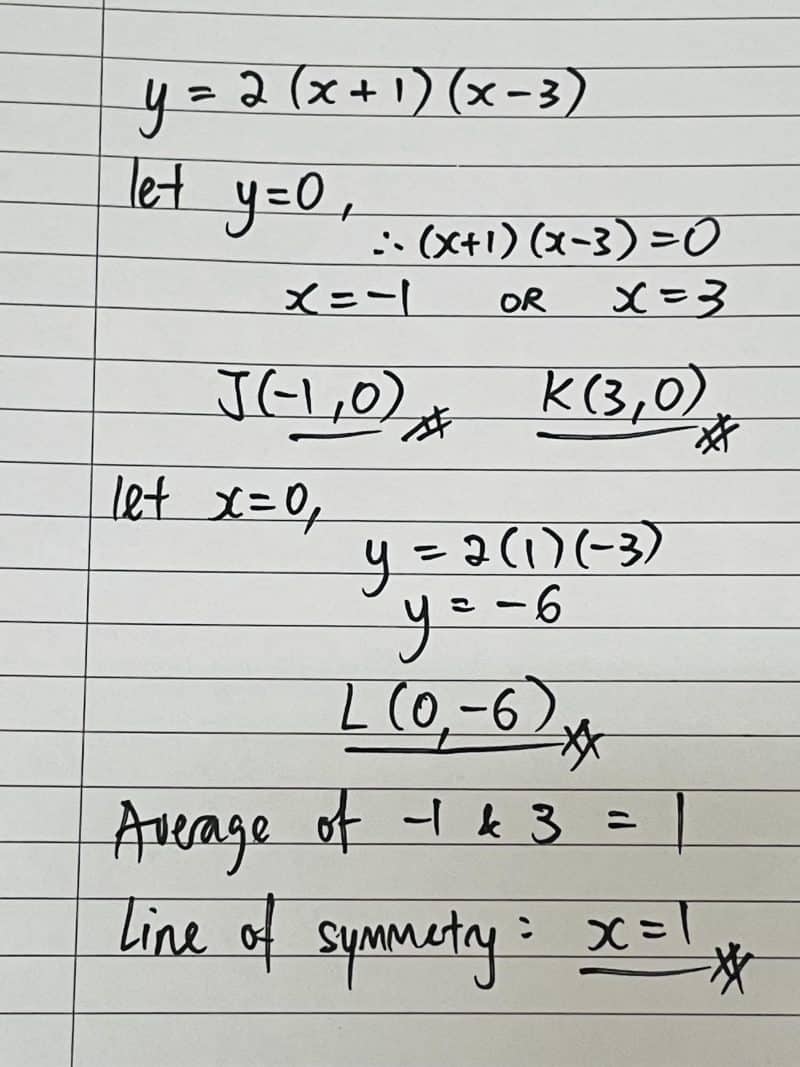 y = 2 (x + 1) (x - 3)
let y = 0,
∴ (x+1) (x-3) = 0
x = -1 OR x = 3
J(-1,0) K(3,0)
let x = 0,
y = 2(1)(-3)
y = -6
L(0,-6)
Average of -1 & 3 = 1
Line of symmetry: x = 1